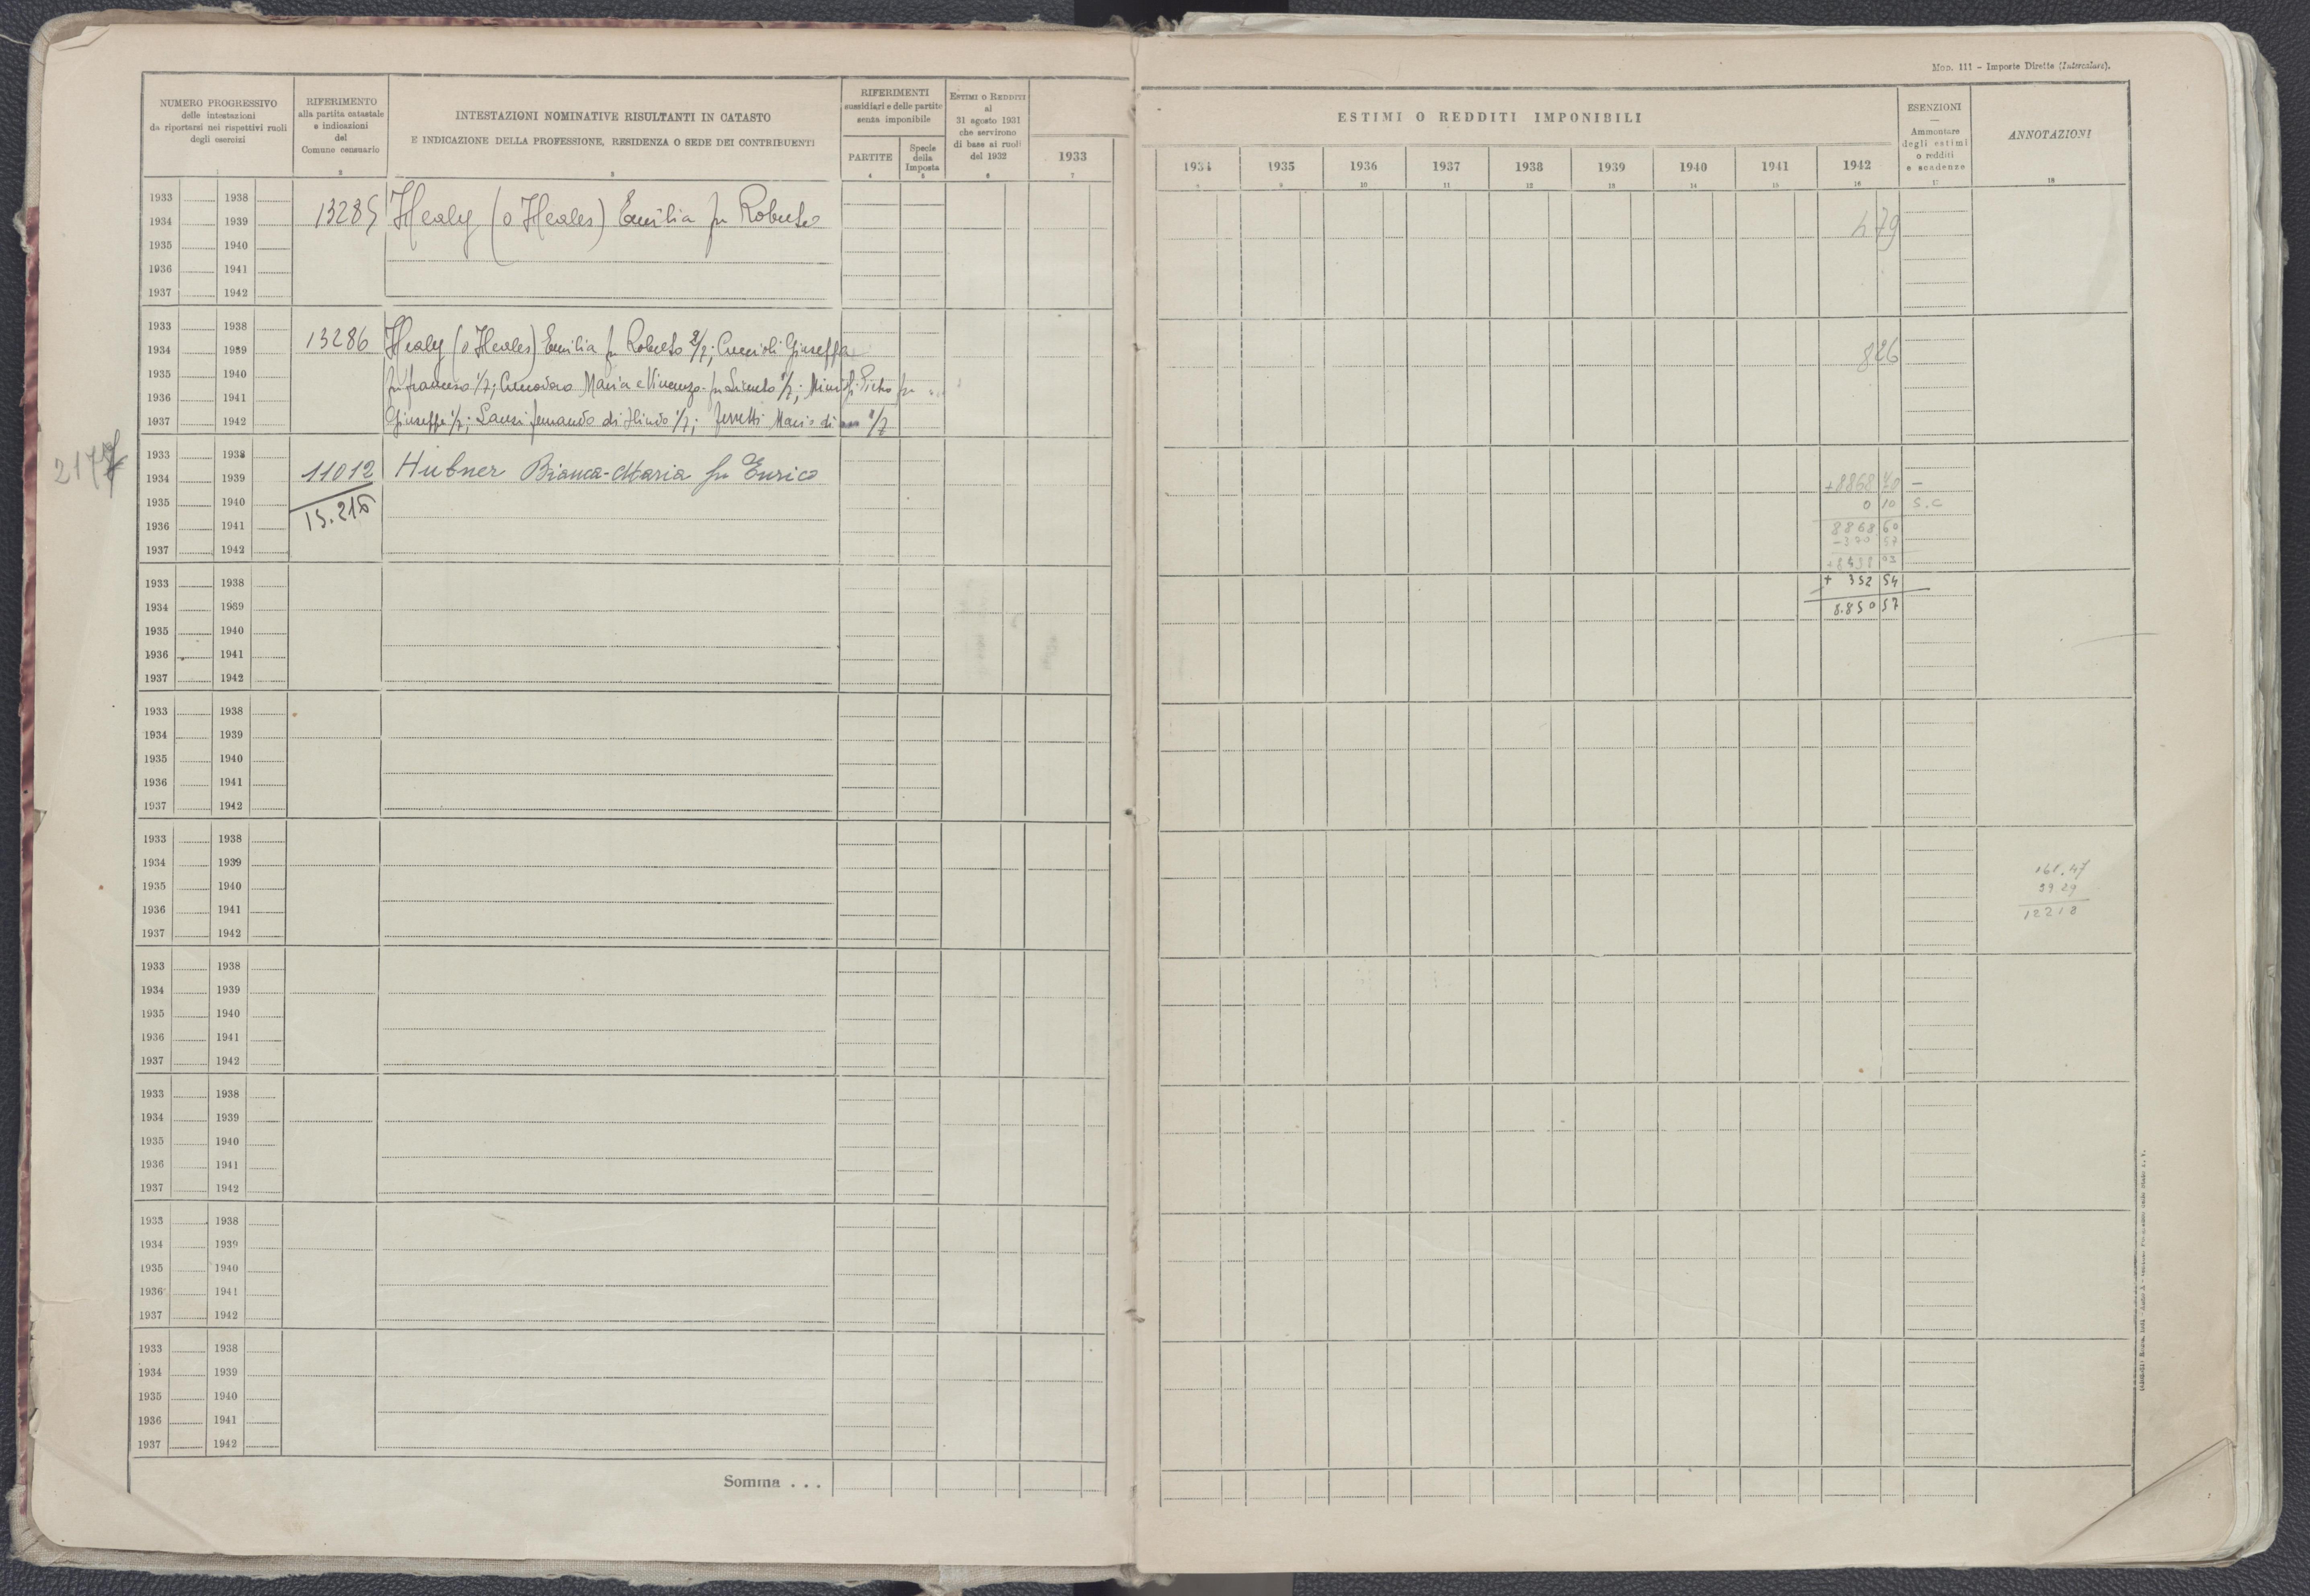 Mod. 111 - Imposte Dirette (Intercalare).
NUMERO PROGRESSIVO
delle intestazioni
da riportarsi nei rispettivi ruoli
degli esercizi
1
RIFERIMENTO
alla partita catastale
e indicazioni
del
Comune censuario
2
INTESTAZIONI NOMINATIVE RISULTANTI IN CATASTO
E INDICAZIONE DELLA PROFESSIONE, RESIDENZA O SEDE DEI CONTRIBUENTI
3
RIFERIMENTI
sussidiari e delle partite
senza imponibile
PARTITE
4
Specie
della
Imposta
5
ESTIMI O REDDITI
al
31 agosto 1931
che servirono
di base ai ruoli
del 1932
6
1933
7
ESTIMI O REDDITI IMPONIBILI
1934 1935 1936 1937 1938 1939 1940 1941 1942
8 9 10 11 12 13 14 15 16
ESENZIONI
—
Ammontare
degli estimi
o redditi
e scadenze
17
ANNOTAZIONI
18
1933 1938
1934 1939 13285 Healy (o Heales) Emilia fu Roberto 479
1935 1940
1936 1941
1937 1942
1933 1938
1934 1939 13286 Healy (o Heales) Emilia fu Roberto 2/7; Giuseffa 826
1935 1940 fu francesco 1/7; Maria e Vincenzo fu 1/7; Pietro fu
1936 1941
1937 1942 Giuseppe 1/7; fernando di 1/7; ferretti Mario di 1/7
1933 1938
2177
1934 1939 11012 Hubner Bianca-Maria fu Enrico +8868 —
1935 1940 15.216 0 10 S.C
1936 1941 8868 60
1937 1942 -370 57
1933 1938 + 352 54
1934 1939 8.850 57
1935 1940
1936 1941
1937 1942
1933 1938
1934 1939
1935 1940
1936 1941
1937 1942
1933 1938
1934 1939 39.29
1935 1940
1936 1941 12218
1937 1942
1933 1938
1934 1939
1935 1940
1936 1941
1937 1942
1933 1938
1934 1939
1935 1940
1936 1941
1937 1942
1933 1938
1934 1939
1935 1940
1936 1941
1937 1942
1933 1938
1934 1939
1935 1940
1936 1941
1937 1942
Somma . . .